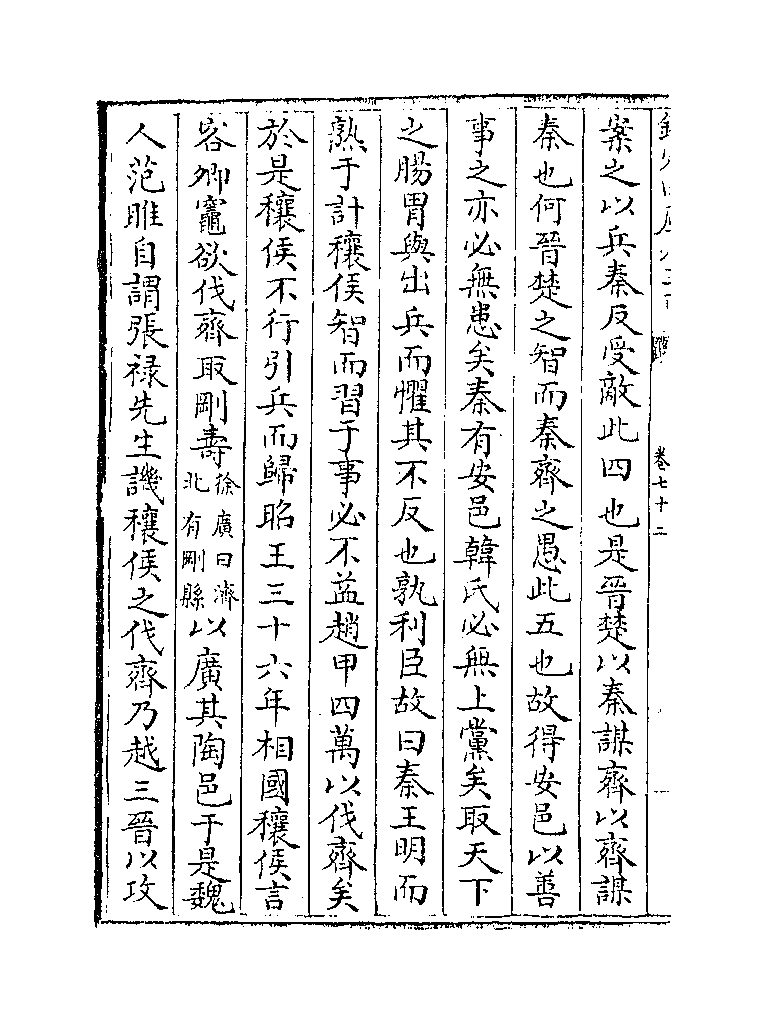 卷七十二
案之以兵秦反受敵此四也是晉楚以秦謀齊以齊謀
秦也何晉楚之智而秦齊之愚此五也故得安邑以善
事之亦必無患矣秦有安邑韓氏必無上黨矣取天下
之腸胃與出兵而懼其不反也孰利臣故曰秦王明而
熟于計穰侯智而習于事必不益趙甲四萬以伐齊矣
於是穰侯不行引兵而歸昭王三十六年相國穰侯言
客卿竈欲伐齊取剛壽徐廣曰濟北有剛縣以廣其陶邑于是魏
人范雎自謂張祿先生譏穰侯之伐齊乃越三晉以攻